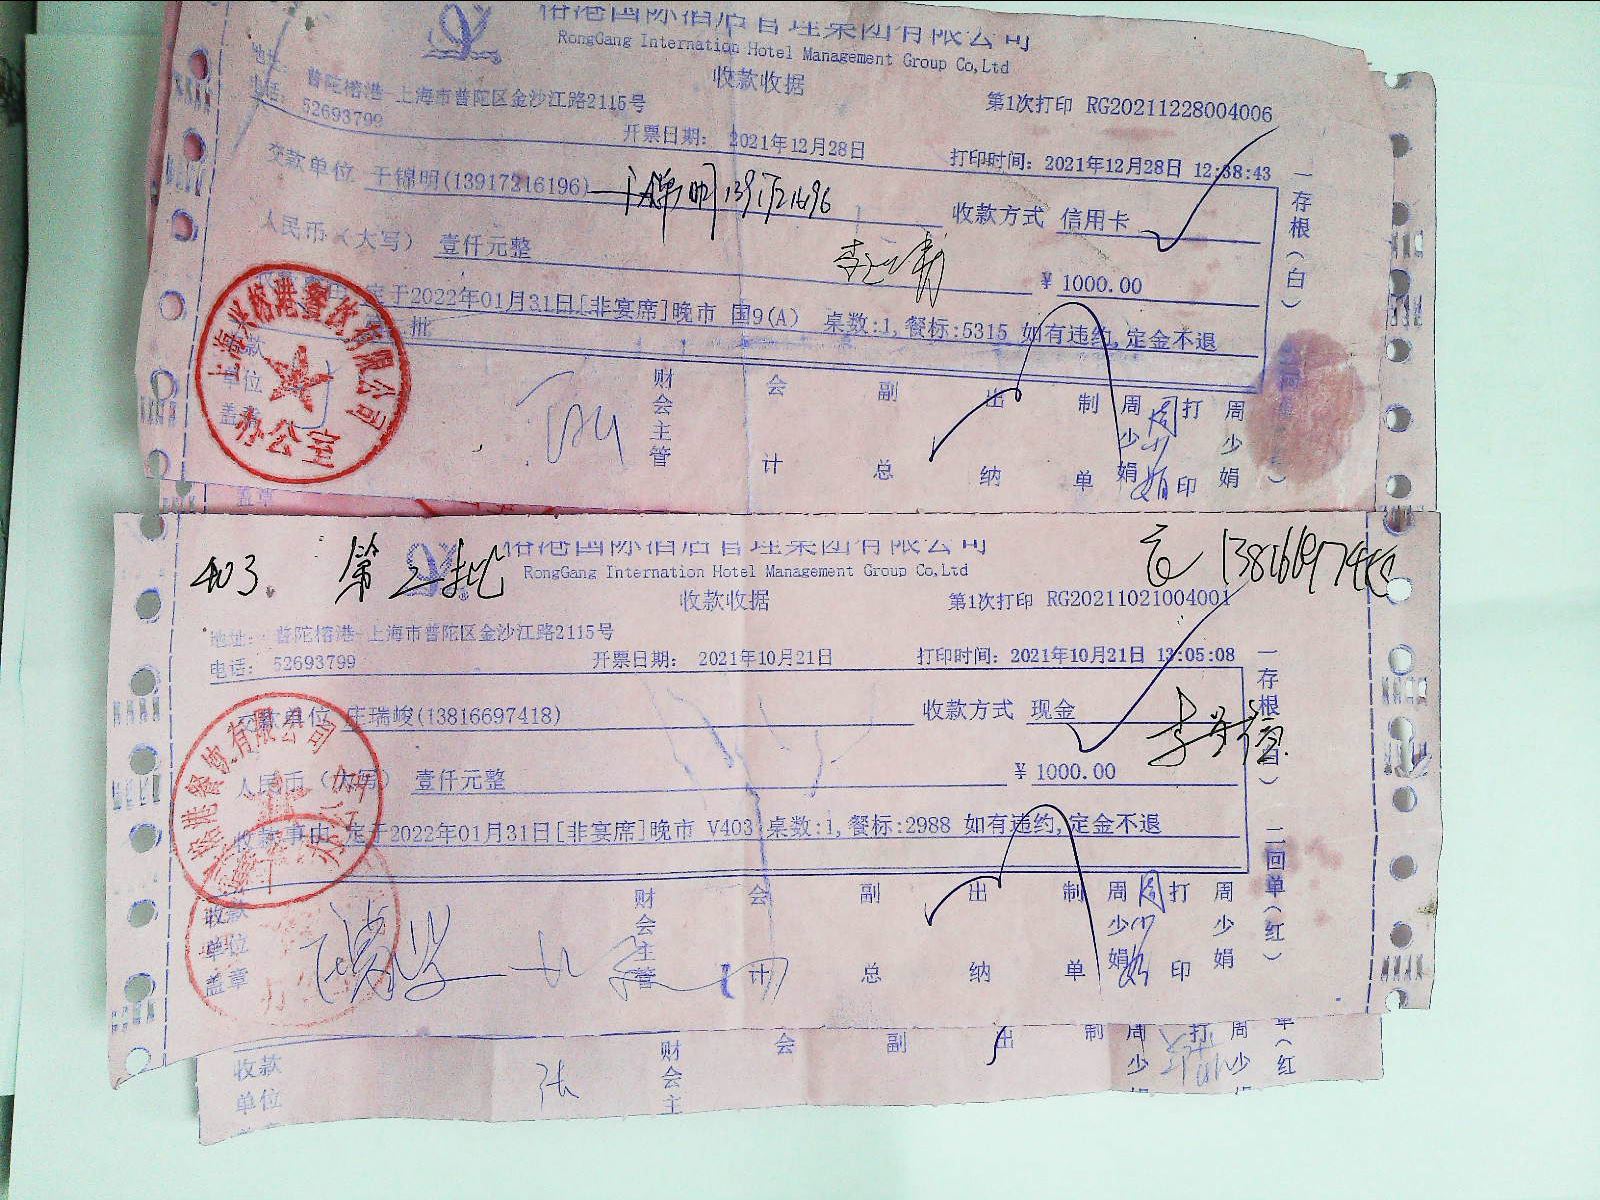 榕港国际酒店管理集团有限公司
RongGang Internation Hotel Management Group Co,Ltd
收款收据
地址: 普陀榕港-上海市普陀区金沙江路2115号
第1次打印 RG20211228004006
电话: 52693799
开票日期: 2021年12月28日
打印时间: 2021年12月28日 12:38:43
交款单位 于锦明(13917216196)
收款方式 信用卡
人民币(大写) 壹仟元整
¥ 1000.00
定于2022年01月31日[非宴席]晚市 国9(A) 桌数:1,餐标:5315 如有违约,定金不退
批
收款单位盖章
财会主管 会计 副总 出纳 制单 周少娟 周少娟 打印 周少娟
一存根(白)
上海兴榕港餐饮有限公司
办公室
盖章
403. 第二批
榕港国际酒店管理集团有限公司
RongGang Internation Hotel Management Group Co,Ltd
收款收据
第1次打印 RG20211021004001
地址: 普陀榕港-上海市普陀区金沙江路2115号
电话: 52693799
开票日期: 2021年10月21日
打印时间: 2021年10月21日 13:05:08
交款单位 庄瑞峻(13816697418)
收款方式 现金
人民币(大写) 壹仟元整
¥ 1000.00
收款事由 定于2022年01月31日[非宴席]晚市 V403 桌数:1,餐标:2988 如有违约,定金不退
收款单位盖章
财会主管 会计 副总 出纳 制单 周少娟 周少娟 打印 周少娟
一存根(白)
二回单(红)
榕港餐饮有限公司
收款单位
财会主 会 副 出 制 周少 打 周少
单(红
张